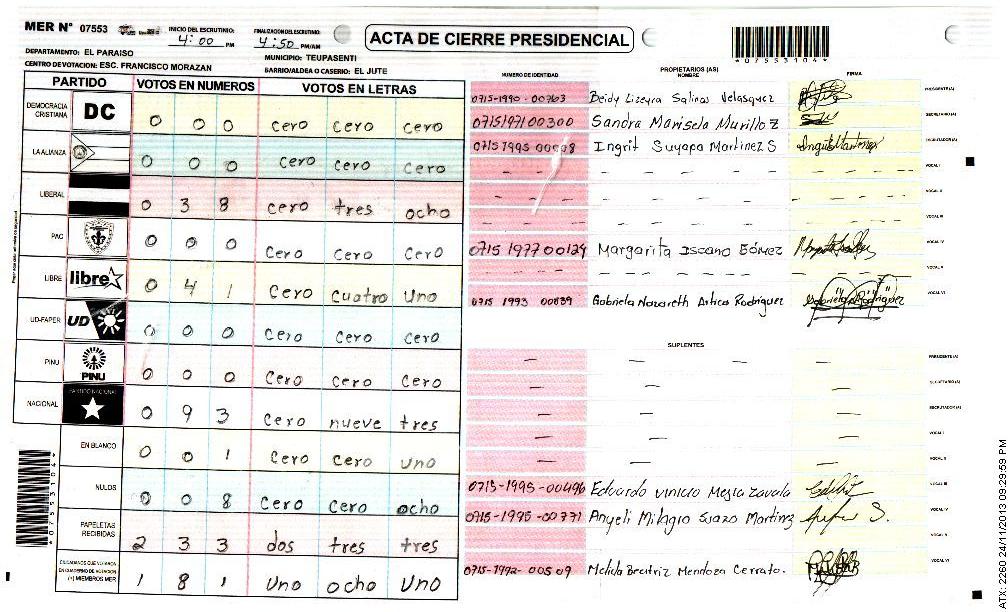 MER N° 07553
INICIO DEL ESCRUTINIO: 4:00 PM
FINALIZACION DEL ESCRUTINIO: 4:50 PM/AM
ACTA DE CIERRE PRESIDENCIAL
*07553104*
DEPARTAMENTO: EL PARAISO
MUNICIPIO: TEUPASENTI
CENTRO DE VOTACION: ESC. FRANCISCO MORAZAN
BARRIO/ALDEA O CASERIO: EL JUTE
PARTIDO VOTOS EN NUMEROS VOTOS EN LETRAS
DEMOCRACIA CRISTIANA DC 0 0 0 cero cero cero
LA ALIANZA 0 0 0 cero cero cero
LIBERAL 0 3 8 cero tres ocho
PAC 0 0 0 cero cero cero
LIBRE libre 0 4 1 cero cuatro uno
UD-FAPER UD 0 0 0 cero cero cero
PINU PINU 0 0 0 cero cero cero
NACIONAL PARTIDO NACIONAL 0 9 3 cero nueve tres
EN BLANCO 0 0 1 cero cero uno
NULOS 0 0 8 cero cero ocho
PAPELETAS RECIBIDAS 2 3 3 dos tres tres
CIUDADANOS QUE VOTARON EN CUADERNO DE VOTACION (+) MIEMBROS MER 1 8 1 uno ocho uno
*07553104*
PROPIETARIOS (AS)
NUMERO DE IDENTIDAD NOMBRE FIRMA
0715-1990-00763 Beidy Lizeyra Salinas Velasquez PRESIDENTE(A)
0715197100300 Sandra Marisela Murillo Z SECRETARIO(A)
Ingrit Suyapa Martinez S ESCRUTADOR(A)
VOCAL I
VOCAL II
VOCAL III
0715 1977 00124 Margarita Iscano Gómez VOCAL IV
VOCAL V
0715 1993 00839 Gabriela Nazareth Rodriguez VOCAL VI
SUPLENTES
PRESIDENTE(A)
SECRETARIO(A)
ESCRUTADOR(A)
VOCAL I
VOCAL II
0715-1995-00496 Eduardo Vinicio Mejia Zavala VOCAL III
0715-1995-00771 Anyeli Milagro Suazo Martinez VOCAL IV
VOCAL V
0715-1992-00509 Melida Beatriz Mendoza Cerrato. VOCAL VI
ATX: 2260 24/11/2013 09:29:59 PM